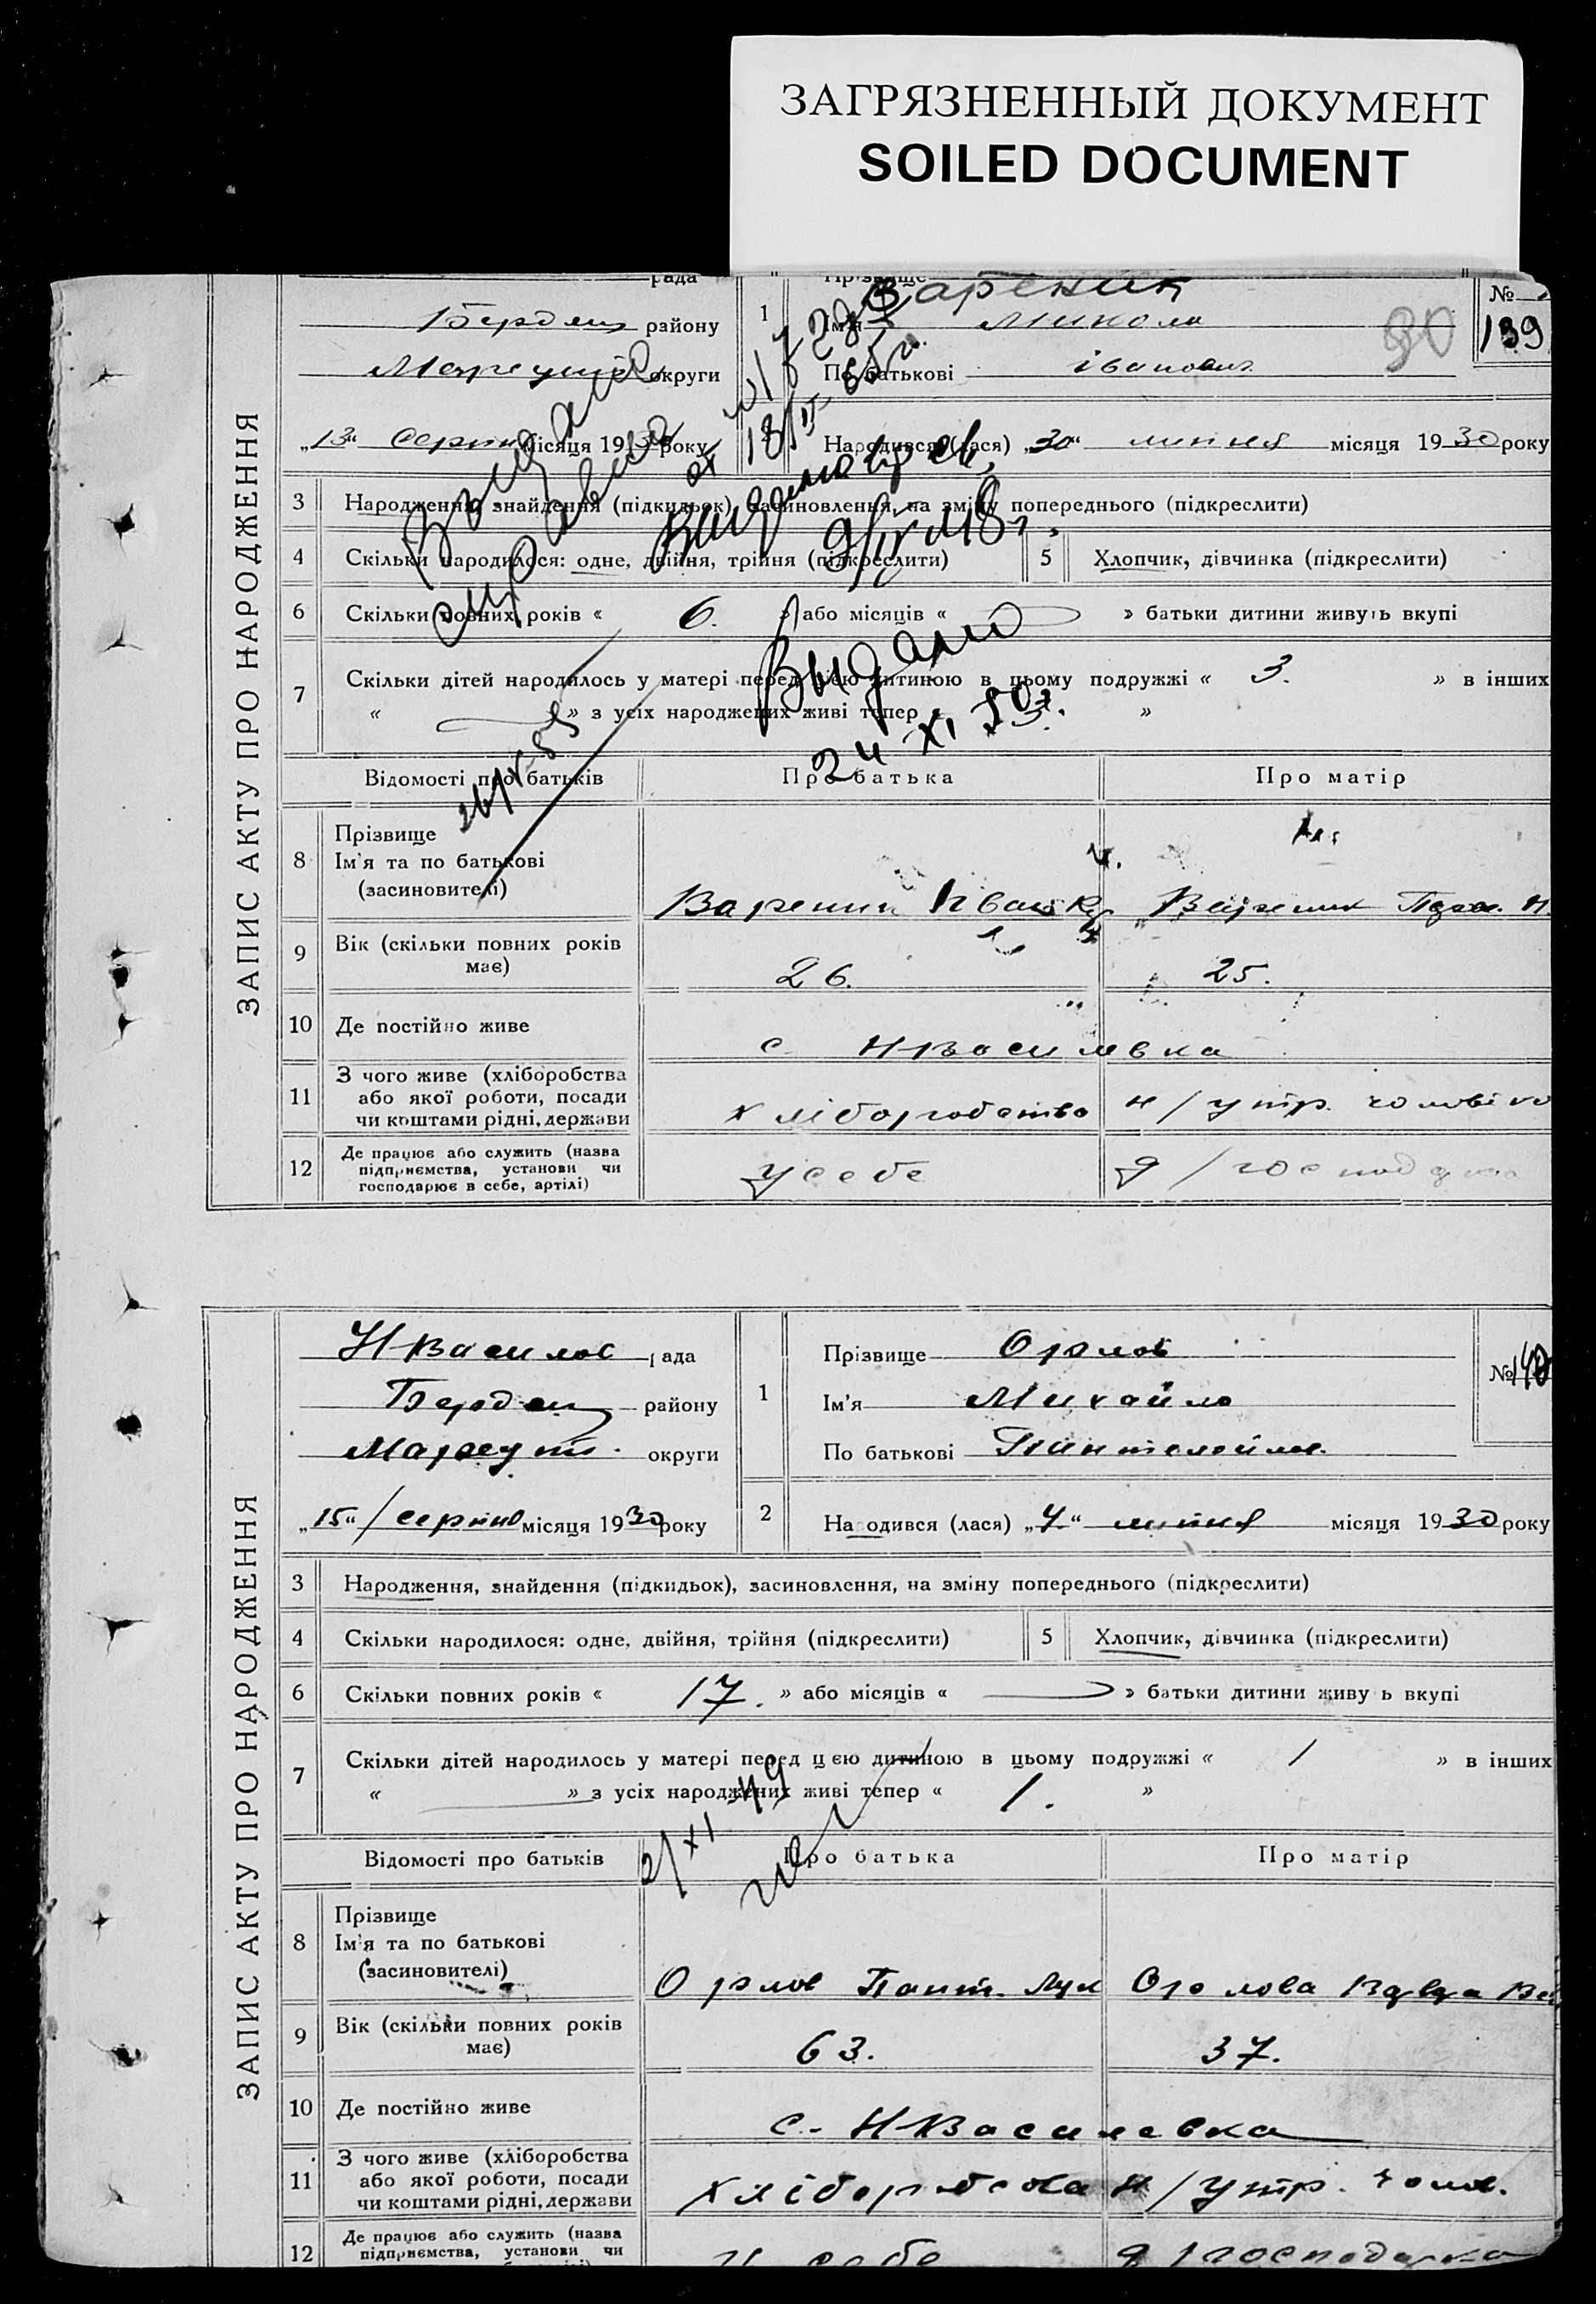 ЗАГРЯЗНЕННЫЙ ДОКУМЕНТ
SOILED DOCUMENT
ЗАПИС АКТУ ПРО НАРОДЖЕННЯ
рада
району
округи
„13“ Серпня місяця 1930 року
1
Прізвище Вареник
Ім'я Микола
По батькові Іванович
№
139
90
Народився (лася) „30“ липня місяця 1930 року
3 Народження, знайдення (підкидьок), засиновлення, на зміну попереднього (підкреслити)
4 Скільки народилося: одне, двійня, трійня (підкреслити)
5 Хлопчик, дівчинка (підкреслити)
6 Скільки повних років « 6. » або місяців « » батьки дитини живуть вкупі
7 Скільки дітей народилось у матері перед цією дитиною в цьому подружжі « 3. » в інших
« » з усіх народжених живі тепер « 3. »
Видано
24 XI
Відомості про батьків
Про батька
Про матір
8 Прізвище
Ім'я та по батькові
(засновителі)
Вареник Іван
Вареник
9 Вік (скільки повних років
має)
26.
25.
10 Де постійно живе
с НВасилівка
11 З чого живе (хліборобства
або якої роботи, посади
чи коштами рідні, держави
хліборобство
н/утр. чоловіка
12 Де працює або служить (назва
підприємства, установи чи
господарює в себе, артілі)
у себе
д/господарка
ЗАПИС АКТУ ПРО НАРОДЖЕННЯ
НВасилів рада
району
округи
„15“ / серпня місяця 1930 року
1
Прізвище Орлов
Ім'я Михайло
По батькові
№ 140
2 Народився (лася) „7.“ липня місяця 1930 року
3 Народження, знайдення (підкидьок), засиновлення, на зміну попереднього (підкреслити)
4 Скільки народилося: одне, двійня, трійня (підкреслити)
5 Хлопчик, дівчинка (підкреслити)
6 Скільки повних років « 17. » або місяців « » батьки дитини живу ь вкупі
7 Скільки дітей народилось у матері перед цією дитиною в цьому подружжі « 1 » в інших
« » з усіх народжених живі тепер « 1. »
2/XI 49
Відомості про батьків
Про батька
Про матір
8 Прізвище
Ім'я та по батькові
(засиновителі)
Орлов Пант. Лук
Орлова
9 Вік (скільки повних років
має)
63.
37.
10 Де постійно живе
с. НВасилевка
11 З чого живе (хліборобства
або якої роботи, посади
чи коштами рідні, держави
н/утр. чолов.
12 Де працює або служить (назва
підприємства, установи чи
у себе
д/господарка